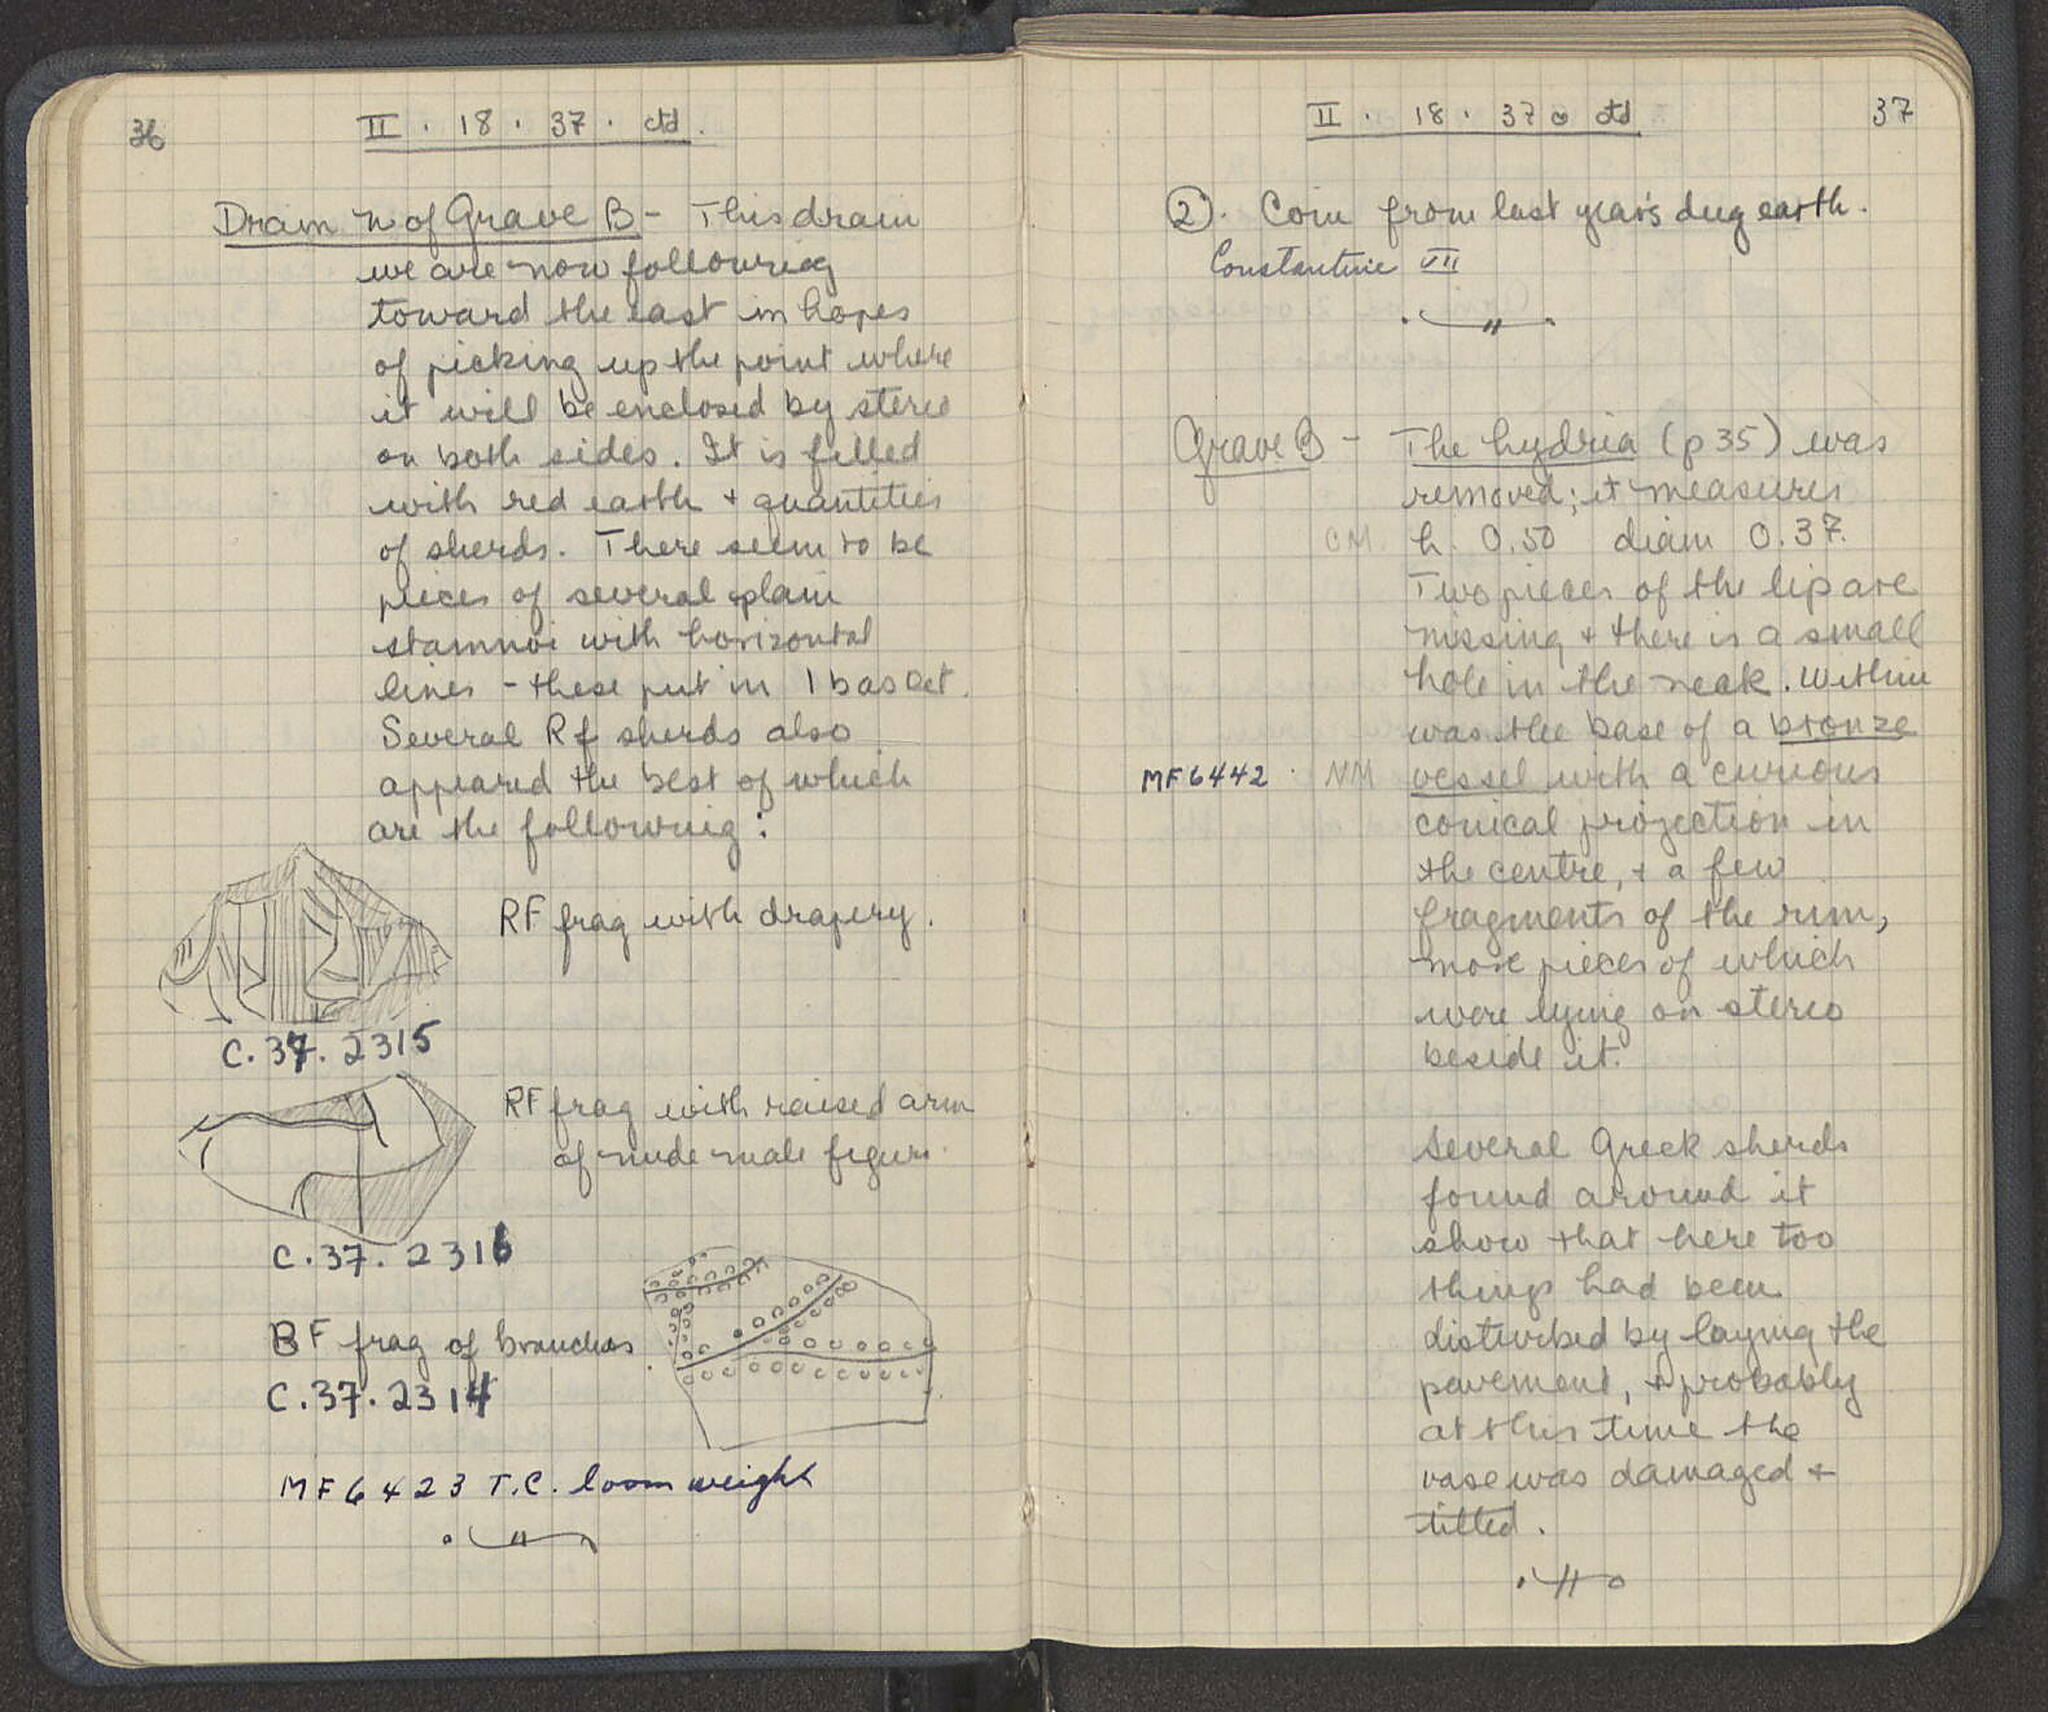 36
II . 18 . 37 . ctd.
Drain N of Grave B - This drain
we are now following
toward the east in hopes
of picking up the point where
it will be enclosed by stereo
on both sides. It is filled
with red earth + quantities
of sherds. There seem to be
pieces of several plain
stamnoi with horizontal
lines - these put in 1 basket.
Several Rf sherds also
appeared the best of which
are the following:
RF frag with drapery.
C.37.2315
RF frag with raised arm
of nude male figure.
C.37.2316
BF frag of branches
C.37.2314
MF 6423 T.C. loom weight
37
II . 18 . 37 . ctd
②. Coin from last year's dug earth.
Constantine VII
Grave B - The hydria (p 35) was
removed; it measures
CM. h. 0.50 diam 0.37.
Two pieces of the lip are
missing + there is a small
hole in the neck. Within
was the base of a bronze
MF6442 NM vessel with a curious
conical projection in
the centre, + a few
fragments of the rim,
more pieces of which
were lying on stereo
beside it.
Several Greek sherds
found around it
show that here too
things had been
disturbed by laying the
pavement, + probably
at this time the
vase was damaged +
tilted.